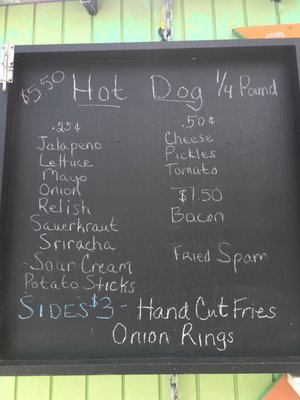 $5.50 Hot Dog 1/4 Pound
.25¢
Jalapeno
Lettuce
Mayo
Onion
Relish
Sauerkraut
Sriracha
Sour Cream
Potato Sticks
.50¢
Cheese
Pickles
Tomato
$1.50
Bacon
Fried Spam
SIDES $3 - Hand Cut Fries
Onion Rings